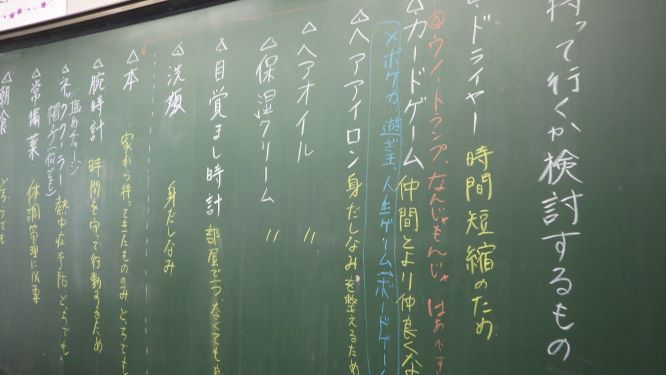 持って行くか検討するもの
・ドライヤー 時間短縮のため
◎ウノ、トランプ、なんじゃもんじゃ
△カードゲーム 仲間とより仲良くな
×ポケカ、遊戯王、人生ゲーム、ボードゲーム
△ヘアアイロン 身だしなみを整えるため
△ヘアオイル 〃
△保湿クリーム 〃
△目覚まし時計 部屋で一つ、なくても
△洗顔 身だしなみ
△本 家から持ってきたもののみ どちらでも
△腕時計 時間を守って行動するため
熱中症予防 どちらでも
△常備薬 体調管理に必要
△朝食 どちらでも